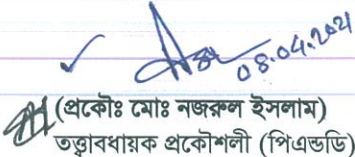 08.04.2021
(প্রকৌঃ মোঃ নজরুল ইসলাম)
তত্ত্বাবধায়ক প্রকৌশলী (পিএন্ডডি)